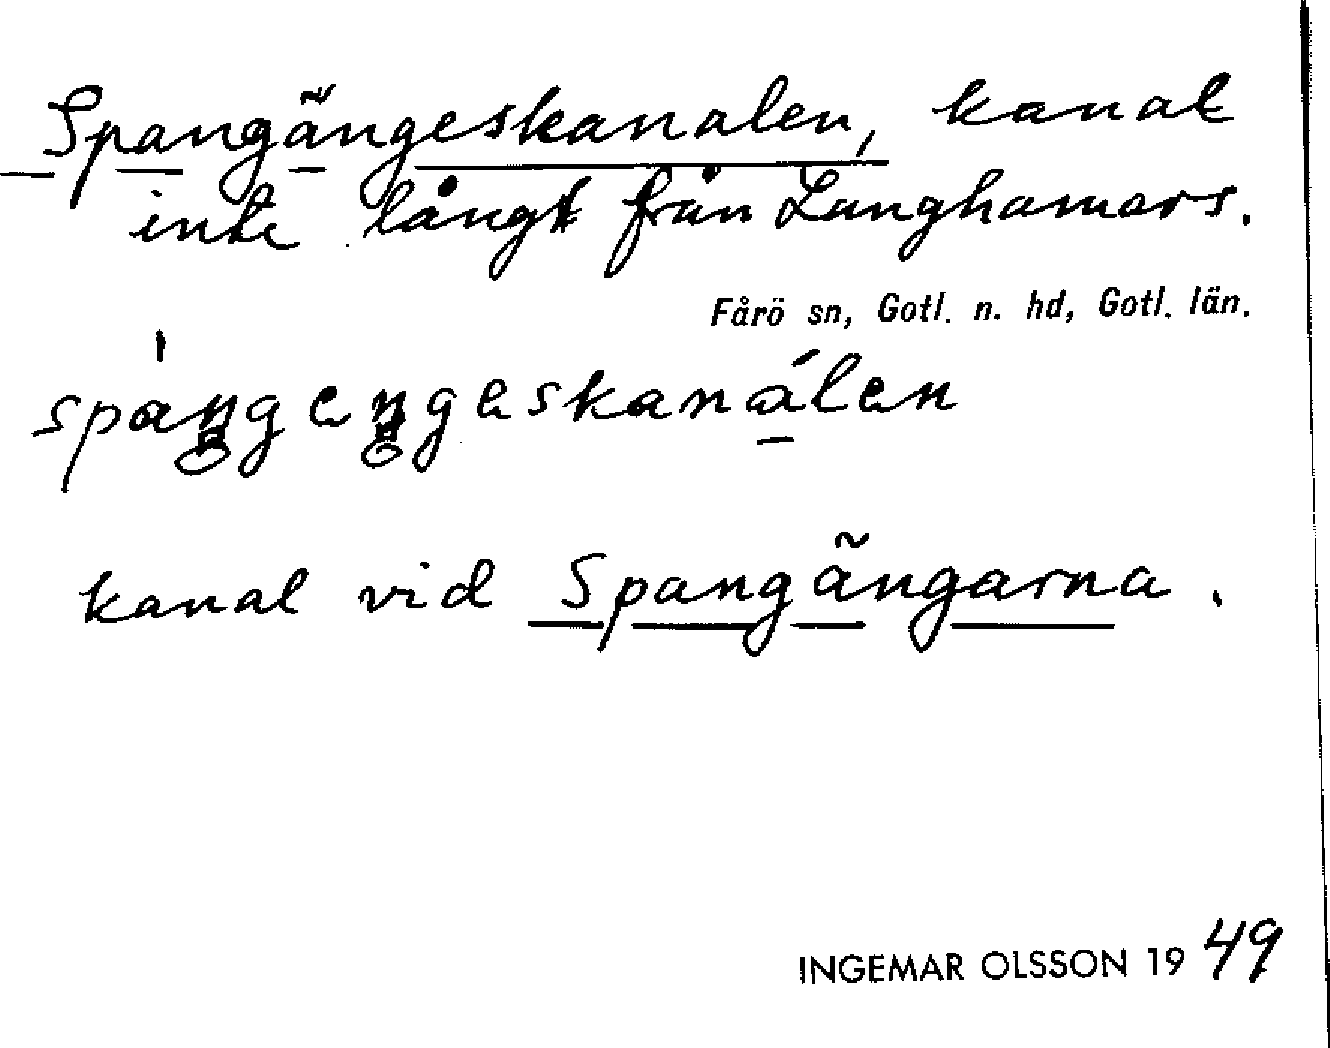 Spangängeskanalen, kanal
inte långt från Langhamars.
Fårö sn, Gotl. n. hd, Gotl. län.
spáŋgeŋgeskanálen
kanal vid Spangängarna.
INGEMAR OLSSON 19 49